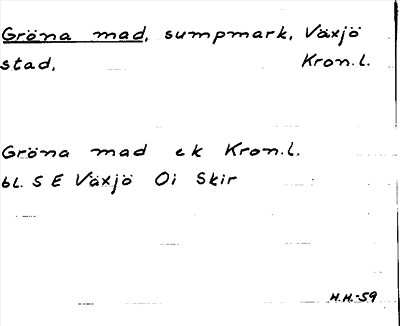 Gröna mad, sumpmark, Växjö
stad, Kron.l.
Gröna mad ek Kron.l.
bl. 5 E Växjö Oi Skir
H.H.-59